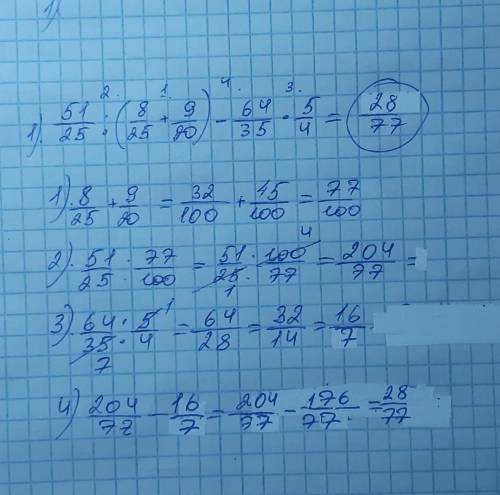 1)
2. 1. 4. 3.
1). 51/25 : (8/25 + 9/20) - 64/35 · 5/4 = 28/77
1). 8/25 + 9/20 = 32/100 + 45/100 = 77/100
2). 51/25 : 77/100 = 51/25 1 · 100 4/77 = 204/77 =
3). 64 · 5 1/35 7 · 4 = 64/28 = 32/14 = 16/7
4) 204/77 - 16/7 = 204/77 - 176/77 = 28/77